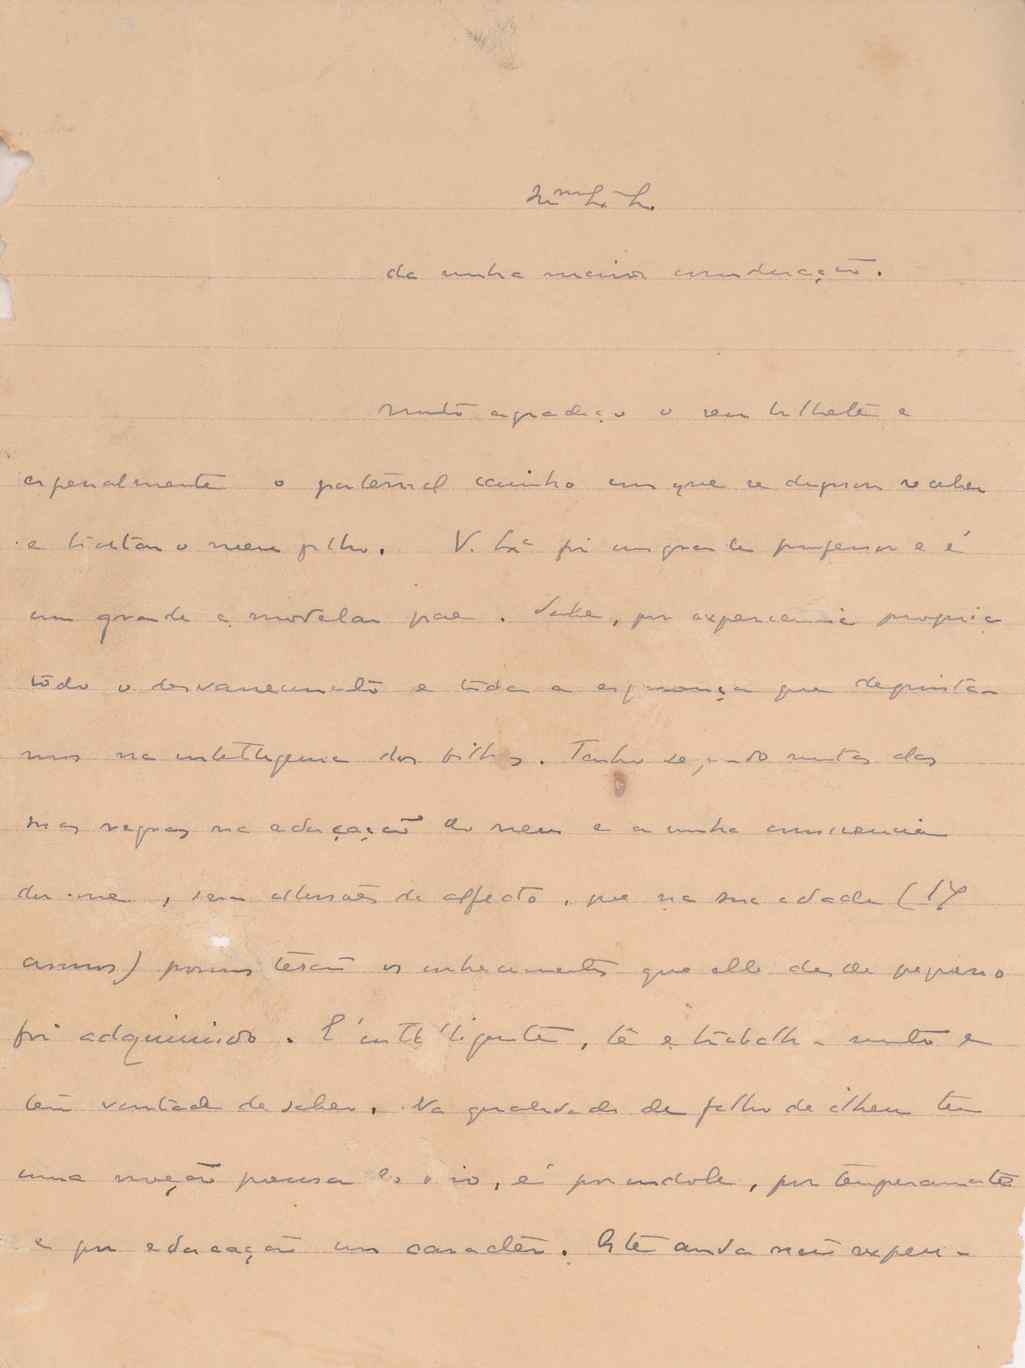 da minha maior consideração.
Muito agradeço o seu bilhete e
especialmente o paternal carinho com que se dignou receber
e tratar o meu filho. V. Exª foi um grande professor e é
um grande e modelar pae. Sabe, por experiencia propria
todo o desvanecimento e toda a esperança que depositа-
mos na intelligencia dos filhos. Tenho seguido muitas das
suas regras na educação do meu e a minha consciencia
diz-me, sem illusões de affecto, que na sua edade (17
annos) poucos terão os conhecimentos que elle desde pequeno
foi adquirindo. É intelligente, lê e trabalha muito e
tem vontade de saber. Na qualidade de filho de ilheu tem
uma noção precisa do brio, é por indole, por temperamento
e por educação um caracter. Até ainda não experi-